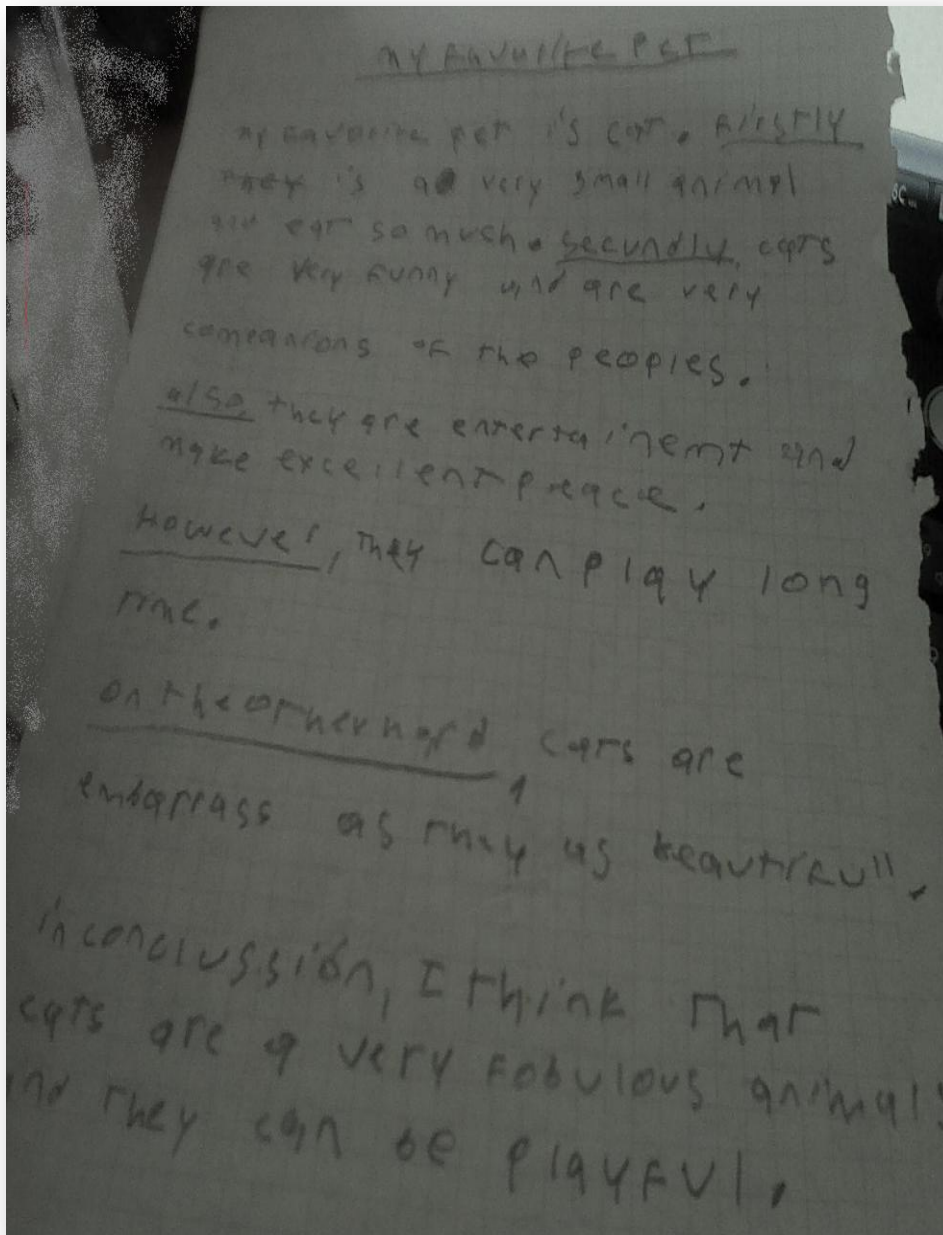 My Favorite Pet
my favorite pet is cat. Firstly
they is a very small animal
and eat so much. secundly, cats
are very funny and are very
companions of the peoples.
also, they are entertainemt and
make excellent preace.
However, they can play long
time.
on the other hard, cats are
embarrass as they as beautifull.
in conclussión, I think that
cats are a very fobulous animals
and they can be playful.
SC